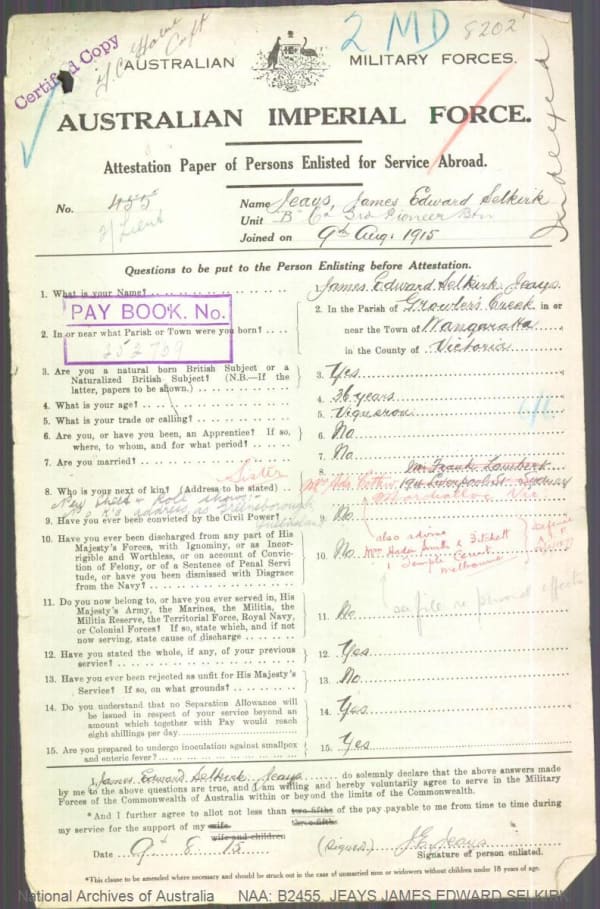 Certified Copy
2 MD
8202
Indexed
AUSTRALIAN MILITARY FORCES.
AUSTRALIAN IMPERIAL FORCE.
Attestation Paper of Persons Enlisted for Service Abroad.
No. 455
2/Lieut
Name Jeays, James Edward Selkirk
Unit "B" Co 3rd Pioneer Btn
Joined on 9th Aug: 1915
Questions to be put to the Person Enlisting before Attestation.
1. What is your Name? 1. James Edward Selkirk Jeays
PAY BOOK. No.
252709
2. In or near what Parish or Town were you born? 2. In the Parish of Growler's Creek in or
near the Town of Wangaratta
in the County of Victoria
3. Are you a natural born British Subject or a
Naturalized British Subject? (N.B.—If the
latter, papers to be shown.) 3. Yes
4. What is your age? 4. 36 years
5. What is your trade or calling? 5. Vigneron
6. Are you, or have you been, an Apprentice? If so,
where, to whom, and for what period? 6. No
7. Are you married? 7. No
Sister
8. Who is your next of kin? (Address to be stated) 8. Mr Frank Lambert
194 Liverpool St. Sydney
Mordialloc Vic
9. Have you ever been convicted by the Civil Power? 9. No
also advise
Melbourne
10. Have you ever been discharged from any part of His
Majesty's Forces, with Ignominy, or as Incor-
rigible and Worthless, or on account of Convic-
tion of Felony, or of a Sentence of Penal Servi-
tude, or have you been Dismissed with Disgrace
from the Navy? 10. No
see file re personal effects
11. Do you now belong to, or have you ever served in, His
Majesty's Army, the Marines, the Militia, the
Militia Reserve, the Territorial Force, Royal Navy,
or Colonial Forces? If so, state which, and if not
now serving, state cause of discharge 11. No
12. Have you stated the whole, if any, of your previous
service? 12. Yes
13. Have you ever been rejected as unfit for His Majesty's
Service? If so, on what grounds? 13. No
14. Do you understand that no Separation Allowance will
be issued in respect of your service beyond an
amount which together with Pay would reach
eight shillings per day 14. Yes
15. Are you prepared to undergo inoculation against smallpox
and enteric fever? 15. Yes
I, James Edward Selkirk Jeays do solemnly declare that the above answers made
by me to the above questions are true, and I am willing and hereby voluntarily agree to serve in the Military
Forces of the Commonwealth of Australia within or beyond the limits of the Commonwealth.
*And I further agree to allot not less than two-fifths of the pay payable to me from time to time during
three-fifths
my service for the support of my wife.
wife and children
Date 9. 8. 15 (Signed) J.E. Jeays
Signature of person enlisted.
*This clause to be amended where necessary and should be struck out in the case of unmarried men or widowers without children under 18 years of age.
National Archives of Australia NAA: B2455, JEAYS JAMES EDWARD SELKIRK